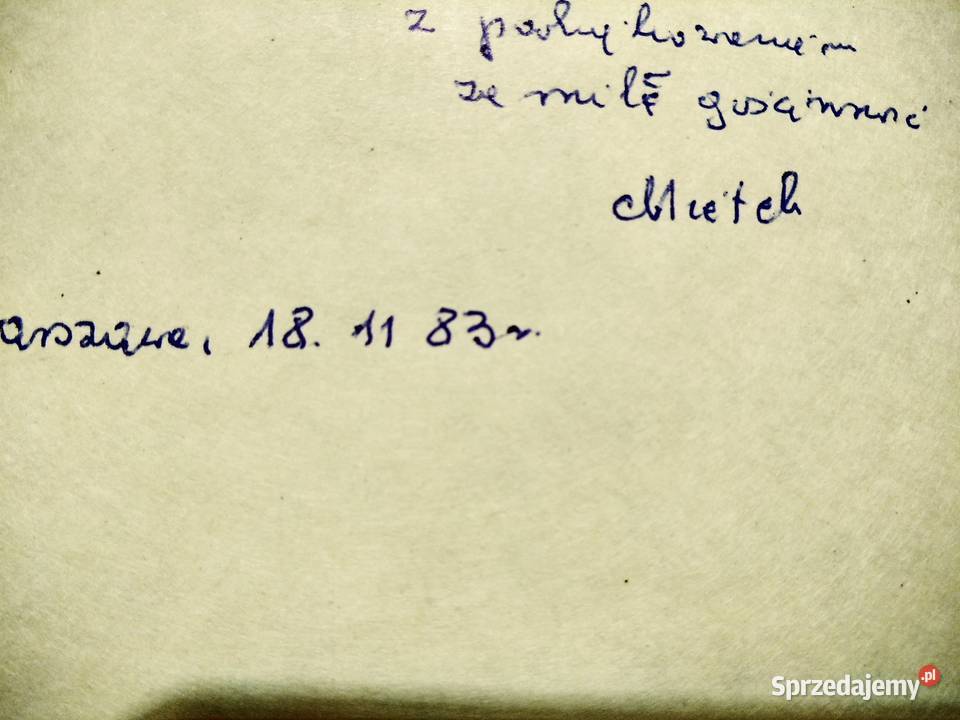 z podziękowaniem
za miłą gościnność
Mietek
arszawa, 18. 11 83 r.
Sprzedajemy.pl